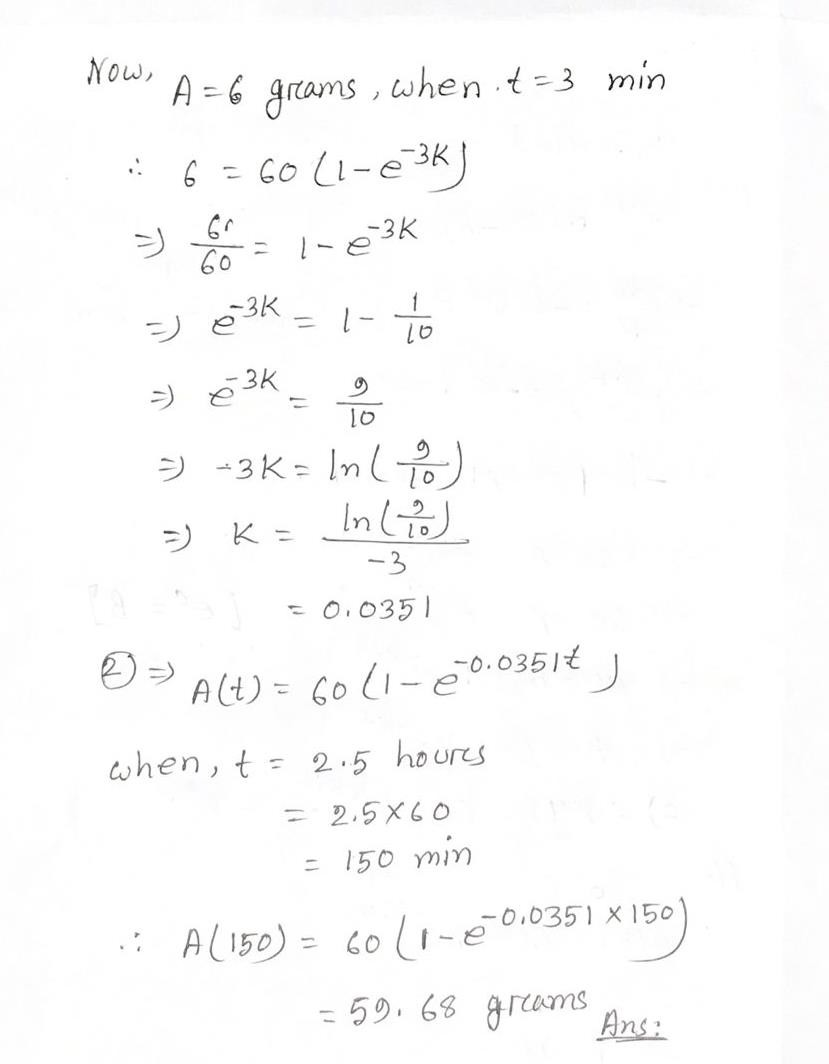 Now, A = 6 grams, when t = 3 min
∴ 6 = 60 (1 - e^{-3K})
⇒ 6/60 = 1 - e^{-3K}
⇒ e^{-3K} = 1 - 1/10
⇒ e^{-3K} = 9/10
⇒ -3K = ln(9/10)
⇒ K = ln(9/10)/-3
= 0.0351
② ⇒ A(t) = 60 (1 - e^{-0.0351t})
when, t = 2.5 hours
= 2.5 × 60
= 150 min
∴ A(150) = 60 (1 - e^{-0.0351 × 150})
= 59.68 grams Ans: